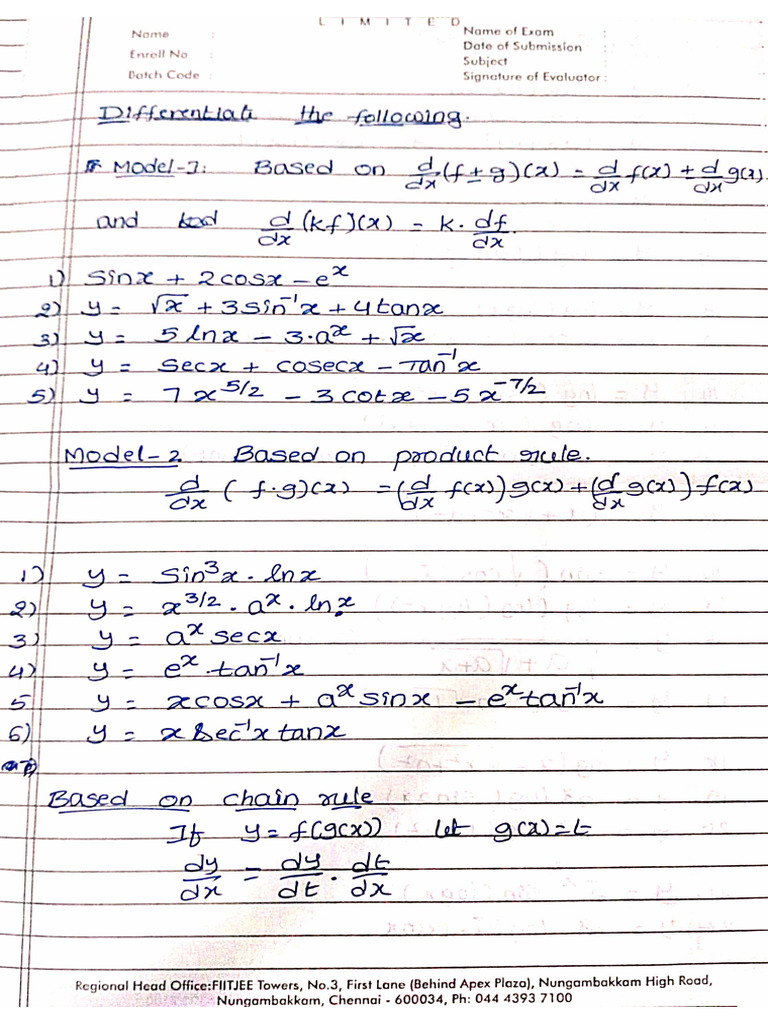 LIMITED
Name : Name of Exam :
Enroll No : Date of Submission :
Batch Code : Subject :
Signature of Evaluator :
Differentiate the following.
Model-1: Based on d/dx (f ± g)(x) = d/dx f(x) ± d/dx g(x)
and d/dx (kf)(x) = k · df/dx.
1) sinx + 2cosx − e^x
2) y = √x + 3sin⁻¹x + 4tanx
3) y = 5 lnx − 3·a^x + √x
4) y = secx + cosecx − Tan⁻¹x
5) y = 7x^(5/2) − 3cotx − 5x^(−7/2)
Model-2 Based on product rule.
d/dx (f·g)(x) = (d/dx f(x)) g(x) + (d/dx g(x)) f(x)
1) y = sin³x · lnx
2) y = x^(3/2) · a^x · lnx
3) y = a^x secx
4) y = e^x · tan⁻¹x
5 y = xcosx + a^x sinx − e^x tan⁻¹x
6) y = x sec⁻¹x tanx
Based on chain rule
If y = f(g(x)) let g(x) = t
dy/dx = dy/dt · dt/dx
Regional Head Office:FIITJEE Towers, No.3, First Lane (Behind Apex Plaza), Nungambakkam High Road,
Nungambakkam, Chennai - 600034, Ph: 044 4393 7100